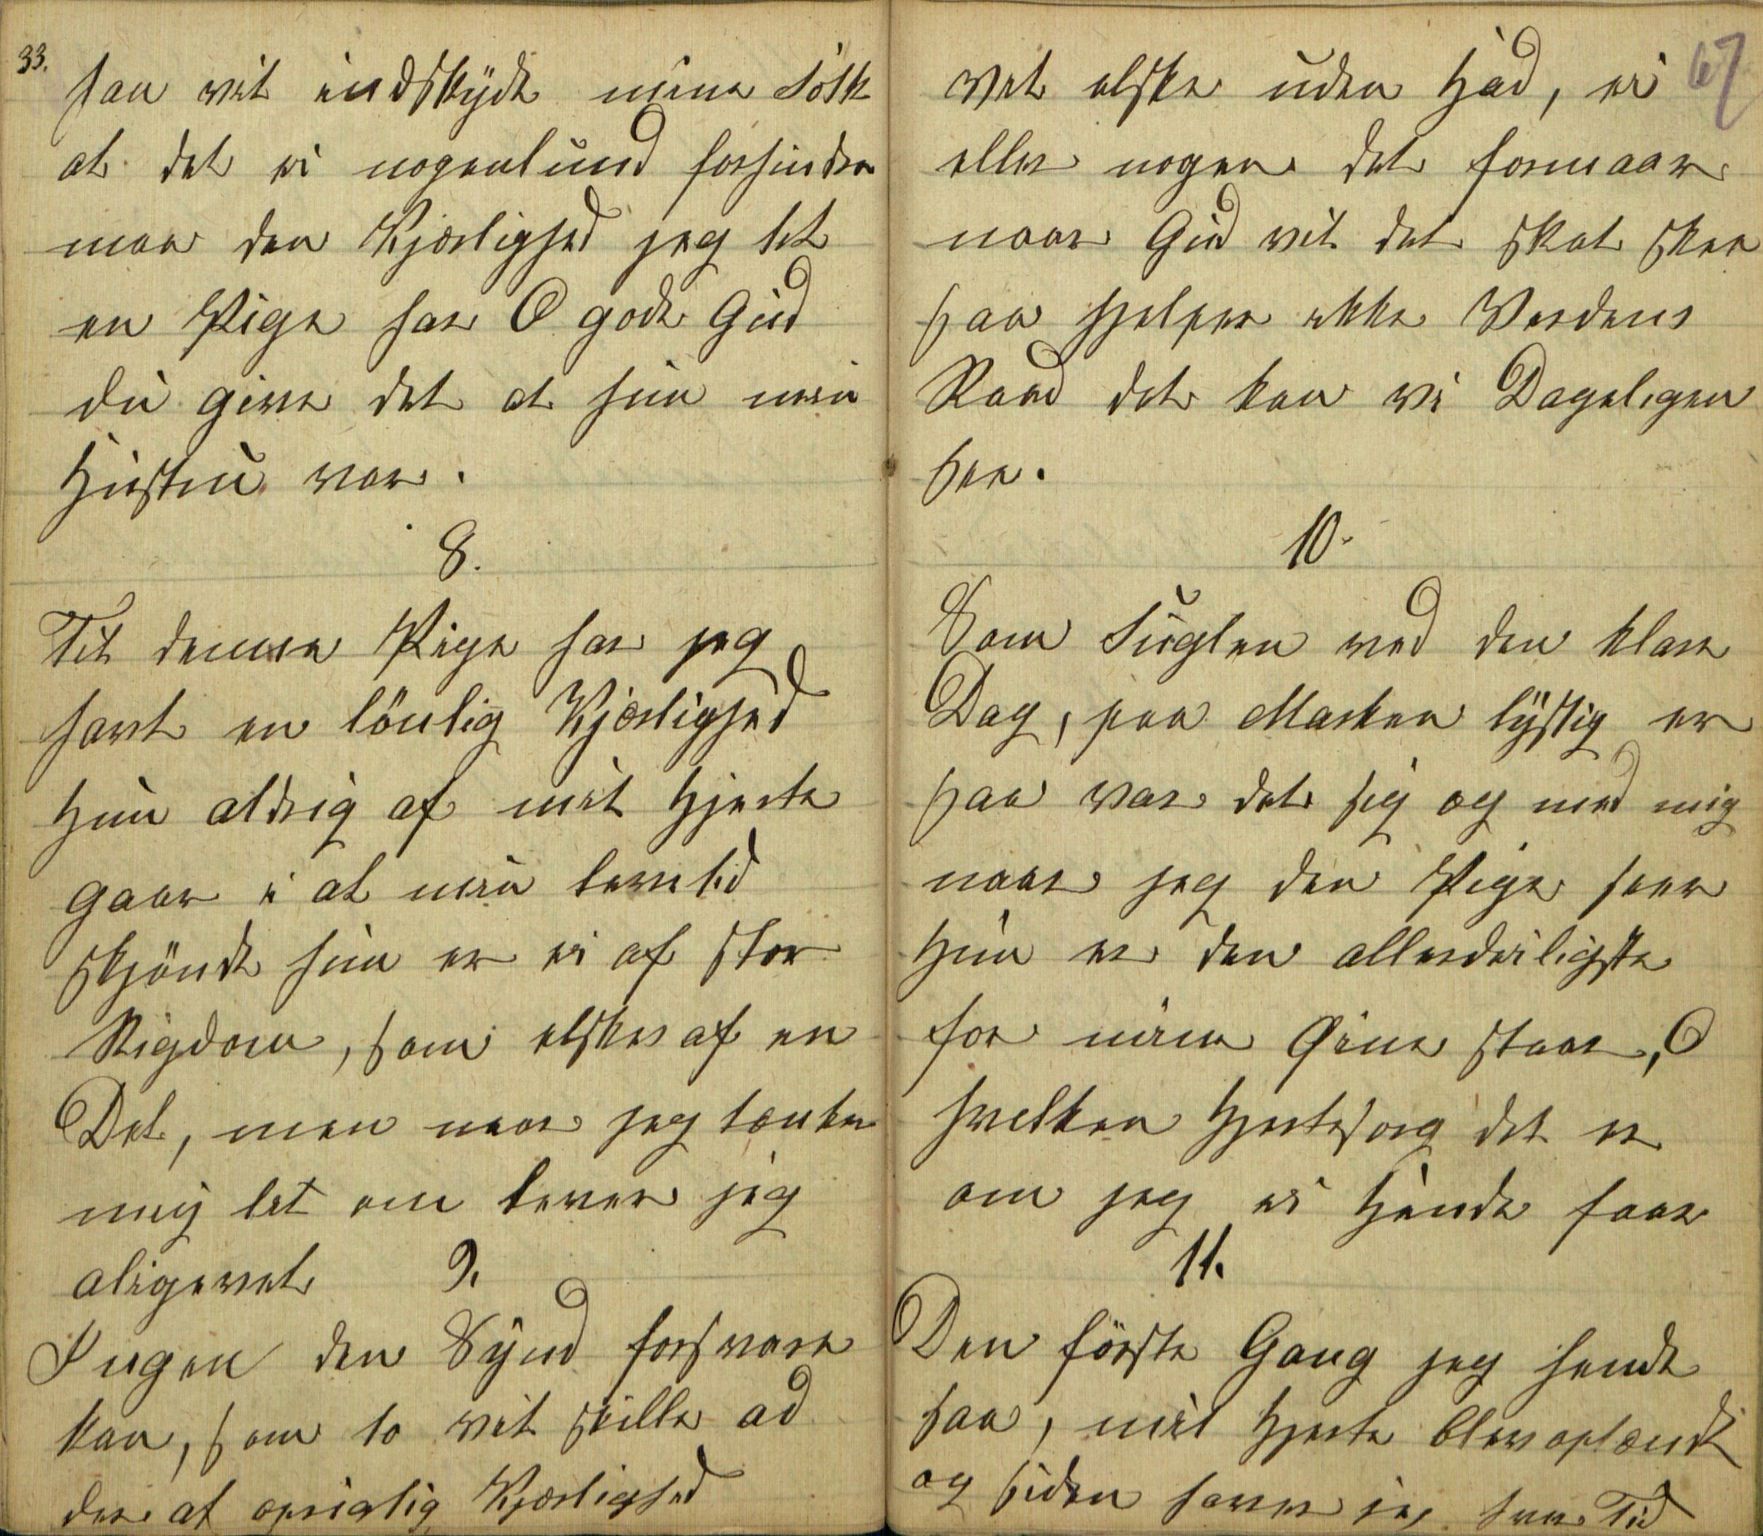 33.
han vil indskÿde mine Folk
at det ei nogenlund forhindre
maa den Kjærlighed jeg til
en Pige har O gode Gud
du give det at hun min
Hustru var.
8.
Til denne Pige har jeg
havt en lönlig Kjærlighed
Hun aldrig af mit Hjerte
gaar i al min levetid
skjöndt hun er ei af stor
Rigdom, som elskes af en
Del, men naar jeg tænker
mig lit om lever jeg
aligevel
9.
Ingen den Sÿnd forsvare
kan, som to vil skille ad
der af oprigtig Kjærlighed
67
vil elske uden Had, ei
eller nogen det formaar
naar Gud vil det skal skee
saa hjelper ikke Verdens
Raad det kan vi Dageligen
see.
10.
Som Fuglen ved den klare
Dag, paa Marken lÿstig er
saa var det sig og med mig
naar jeg den Pige seer
Hun er den allerdeiligste
for mine Øine staar, O
hvilken Hjertesorg det er
om jeg ei Hende faar
11.
Den förste Gang jeg hende
saa, mit Hjerte blev optændt
og siden haver jeg hver Tid